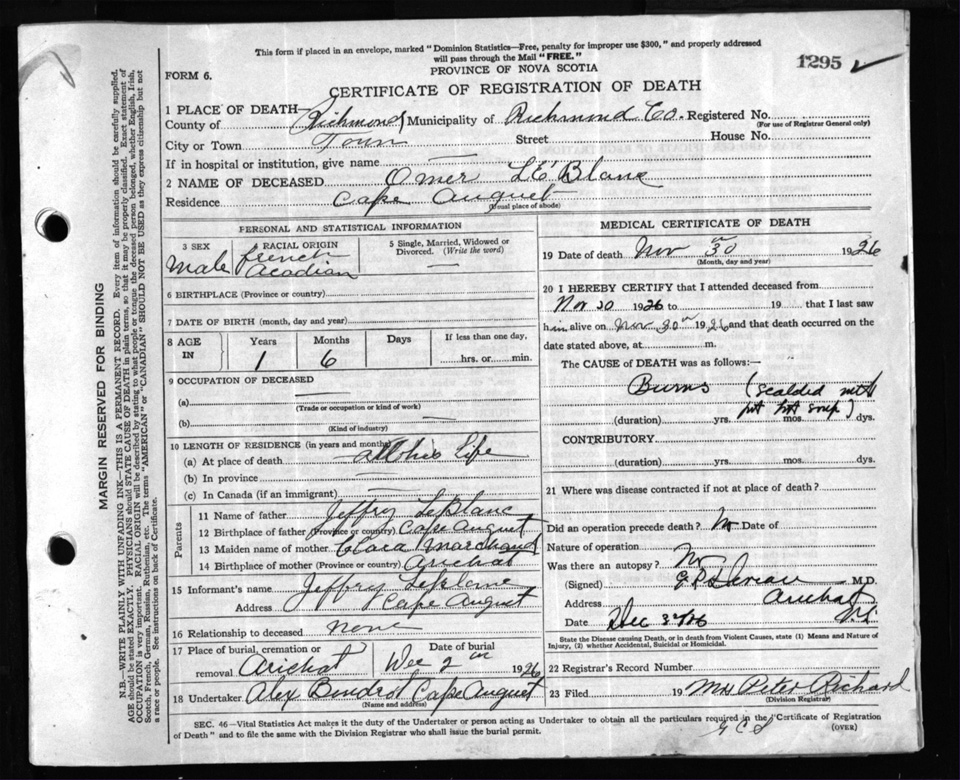 This form if placed in an envelope, marked "Dominion Statistics—Free, penalty for improper use $300," and properly addressed
will pass through the Mail "FREE."
1295 ✓
PROVINCE OF NOVA SCOTIA
FORM 6.
CERTIFICATE OF REGISTRATION OF DEATH
1 PLACE OF DEATH—
County of Richmond Municipality of Richmond Co. Registered No.
(For use of Registrar General only)
City or Town Town Street House No.
If in hospital or institution, give name —
2 NAME OF DECEASED Omer Le Blanc
Residence Cape Auguet
(Usual place of abode)
PERSONAL AND STATISTICAL INFORMATION
3 SEX Male
4 RACIAL ORIGIN French Acadian
5 Single, Married, Widowed or Divorced. (Write the word) —
6 BIRTHPLACE (Province or country)
7 DATE OF BIRTH (month, day and year)
8 AGE IN Years 1 Months 6 Days If less than one day, hrs. or min.
9 OCCUPATION OF DECEASED
(a) —
(Trade or occupation or kind of work)
(b) —
(Kind of industry)
10 LENGTH OF RESIDENCE (in years and months)
(a) At place of death all his life
(b) In province —
(c) In Canada (if an immigrant) —
Parents
11 Name of father Jeffry LeBlanc
12 Birthplace of father (Province or country) Cape Auguet
13 Maiden name of mother Clara Marchand
14 Birthplace of mother (Province or country) Arichat
15 Informant's name Jeffry LeBlanc
Address Cape Auguet
16 Relationship to deceased none
17 Place of burial, cremation or removal Arichat Date of burial Dec 2nd 1926
18 Undertaker Alex Boudrot Cape Auguet
(Name and address)
MEDICAL CERTIFICATE OF DEATH
19 Date of death Nov 30 1926
(Month, day and year)
20 I HEREBY CERTIFY that I attended deceased from
Nov 20 1926 to 19 that I last saw
him alive on Nov 20 1926 and that death occurred on the
date stated above, at m.
The CAUSE of DEATH was as follows:—
Burns (scalded with
hot soup)
(duration) yrs. mos. dys.
CONTRIBUTORY
(duration) yrs. mos. dys.
21 Where was disease contracted if not at place of death?
Did an operation precede death? No Date of
Nature of operation
Was there an autopsy? No
(Signed) M.D.
Address Arichat
Date Dec 3rd/26 N.S.
State the Disease causing Death, or in death from Violent Causes, state (1) Means and Nature of
Injury, (2) whether Accidental, Suicidal or Homicidal.
22 Registrar's Record Number
23 Filed 19 Mrs Peter Richard
(Division Registrar)
SEC. 46—Vital Statistics Act makes it the duty of the Undertaker or person acting as Undertaker to obtain all the particulars required in the "Certificate of Registration
of Death" and to file the same with the Division Registrar who shall issue the burial permit.
(OVER)
MARGIN RESERVED FOR BINDING
N.B.—WRITE PLAINLY WITH UNFADING INK—THIS IS A PERMANENT RECORD. Every item of information should be carefully supplied.
AGE should be stated EXACTLY. PHYSICIANS should STATE CAUSE OF DEATH in plain terms, so that it may be properly classified. Exact statement of
OCCUPATION is very important. RACIAL ORIGIN will be described by stating to what people or tongue the deceased person belonged, whether English, Irish,
Scotch, French, German, Russian, Ruthenian, etc. The terms "AMERICAN" or "CANADIAN" SHOULD NOT BE USED as they express citizenship but not
a race or people. See instructions on back of Certificate.